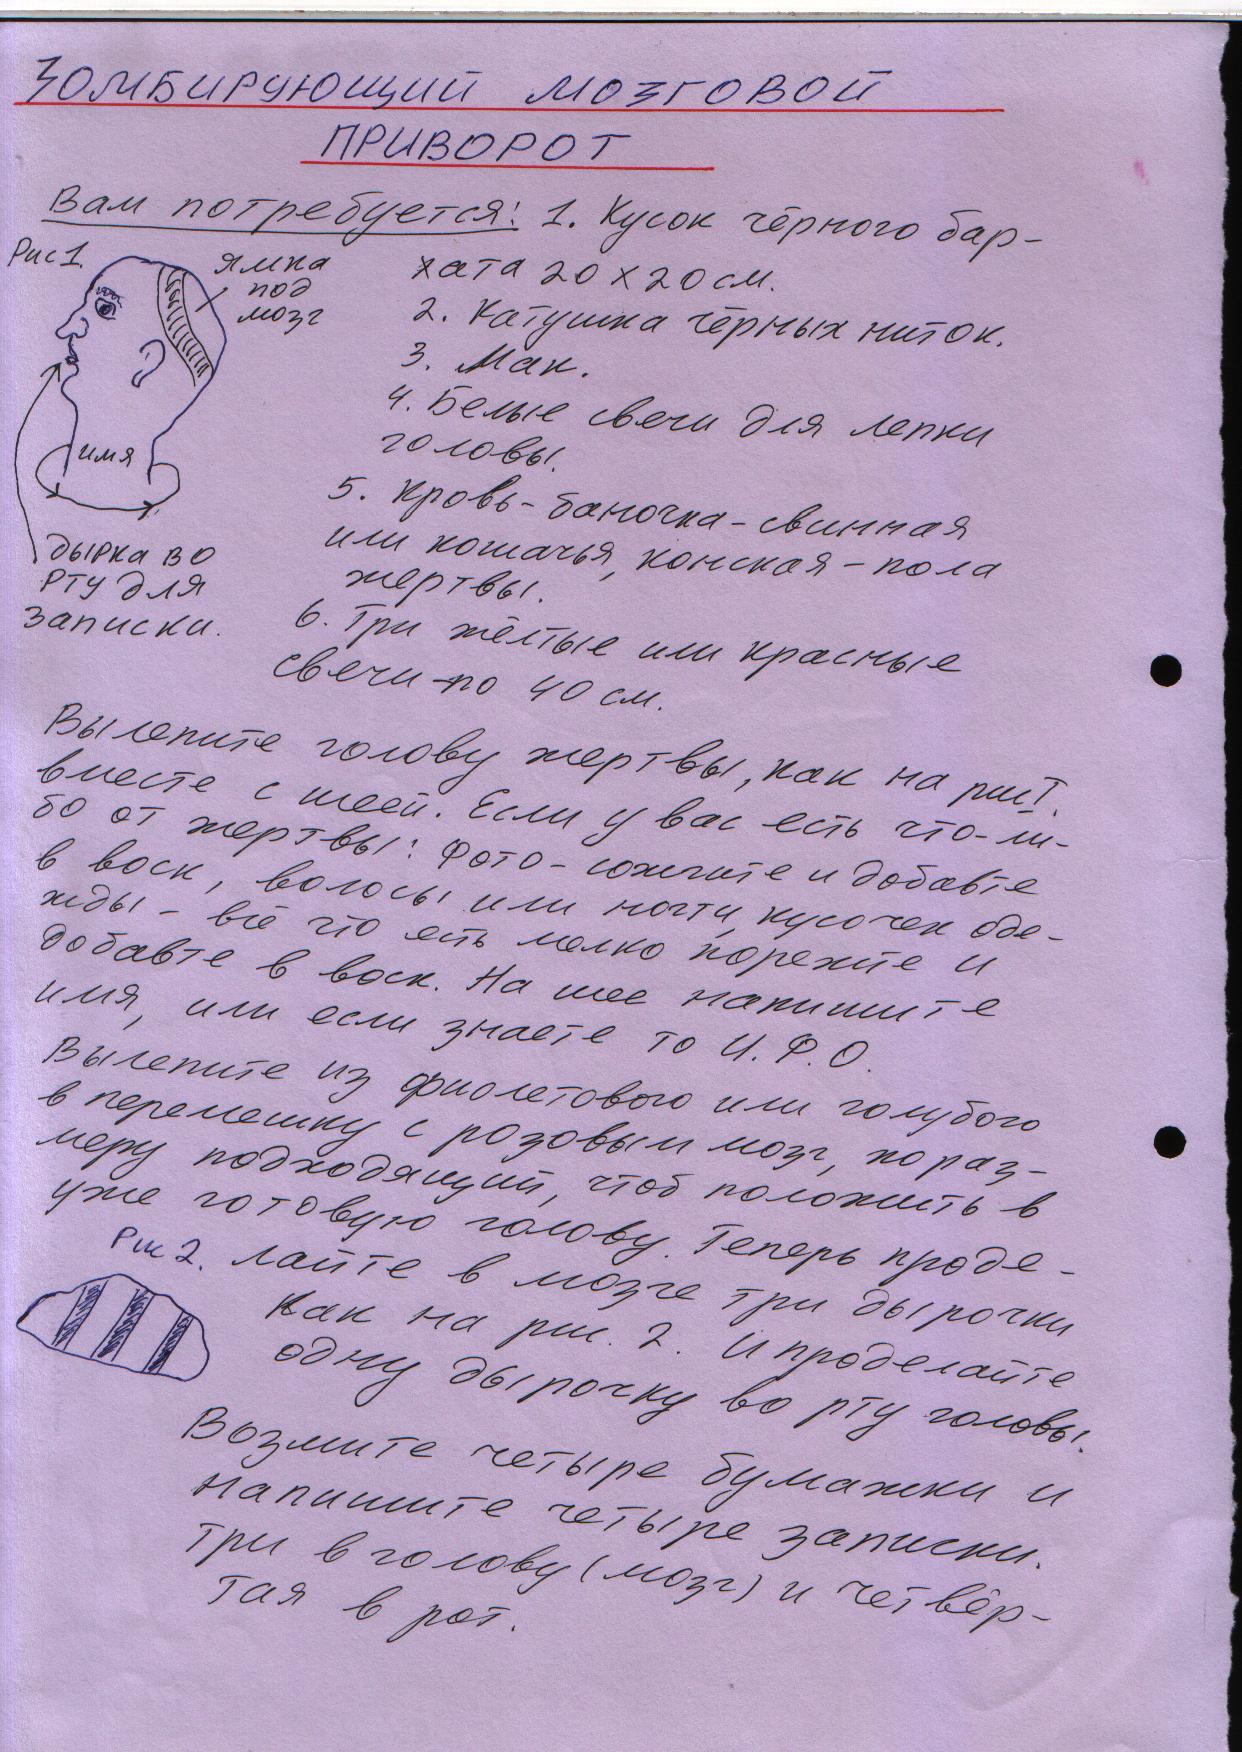 ЗОМБИРУЮЩИЙ МОЗГОВОЙ
ПРИВОРОТ
Вам потребуется: 1. Кусок чёрного бар-
хата 20 х 20 см.
2. Катушка чёрных ниток.
3. Мак.
4. Белые свечи для лепки
головы.
5. Кровь-баночка-свинная
или кошачья, конская - пола
жертвы.
6. Три жёлтые или красные
свечи по 40 см.
Рис 1.
ямка
под
мозг
имя
дырка во
рту для
записки.
Вылепите голову жертвы, как на рис 1.
вместе с шеей. Если у вас есть что-ли-
бо от жертвы: Фото-сожгите и добавте
в воск, волосы или ногти, кусочек оде-
жды - всё что есть мелко порежте и
добавте в воск. На шее напишите
имя, или если знаете то И.Ф.О.
Вылепите из фиолетового или голубого
в перемешку с розовым мозг, по раз-
меру подходящий, чтоб положить в
уже готовую голову. Теперь проде-
Рис 2. лайте в мозге три дырочки
как на рис. 2. И проделайте
одну дырочку во рту головы.
Возмите четыре бумажки и
напишите четыре записки.
Три в голову (мозг) и четвёр-
тая в рот.